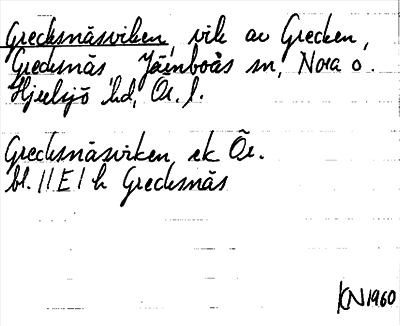 Grecksnäsviken, vik av Grecken,
Grecksnäs Järnboås sn, Nora o.
Hjulsjö hd, Ör. l.
Grecksnäsviken, ek Ör.
bl. 11 E 1 h Grecksnäs
KN 1960